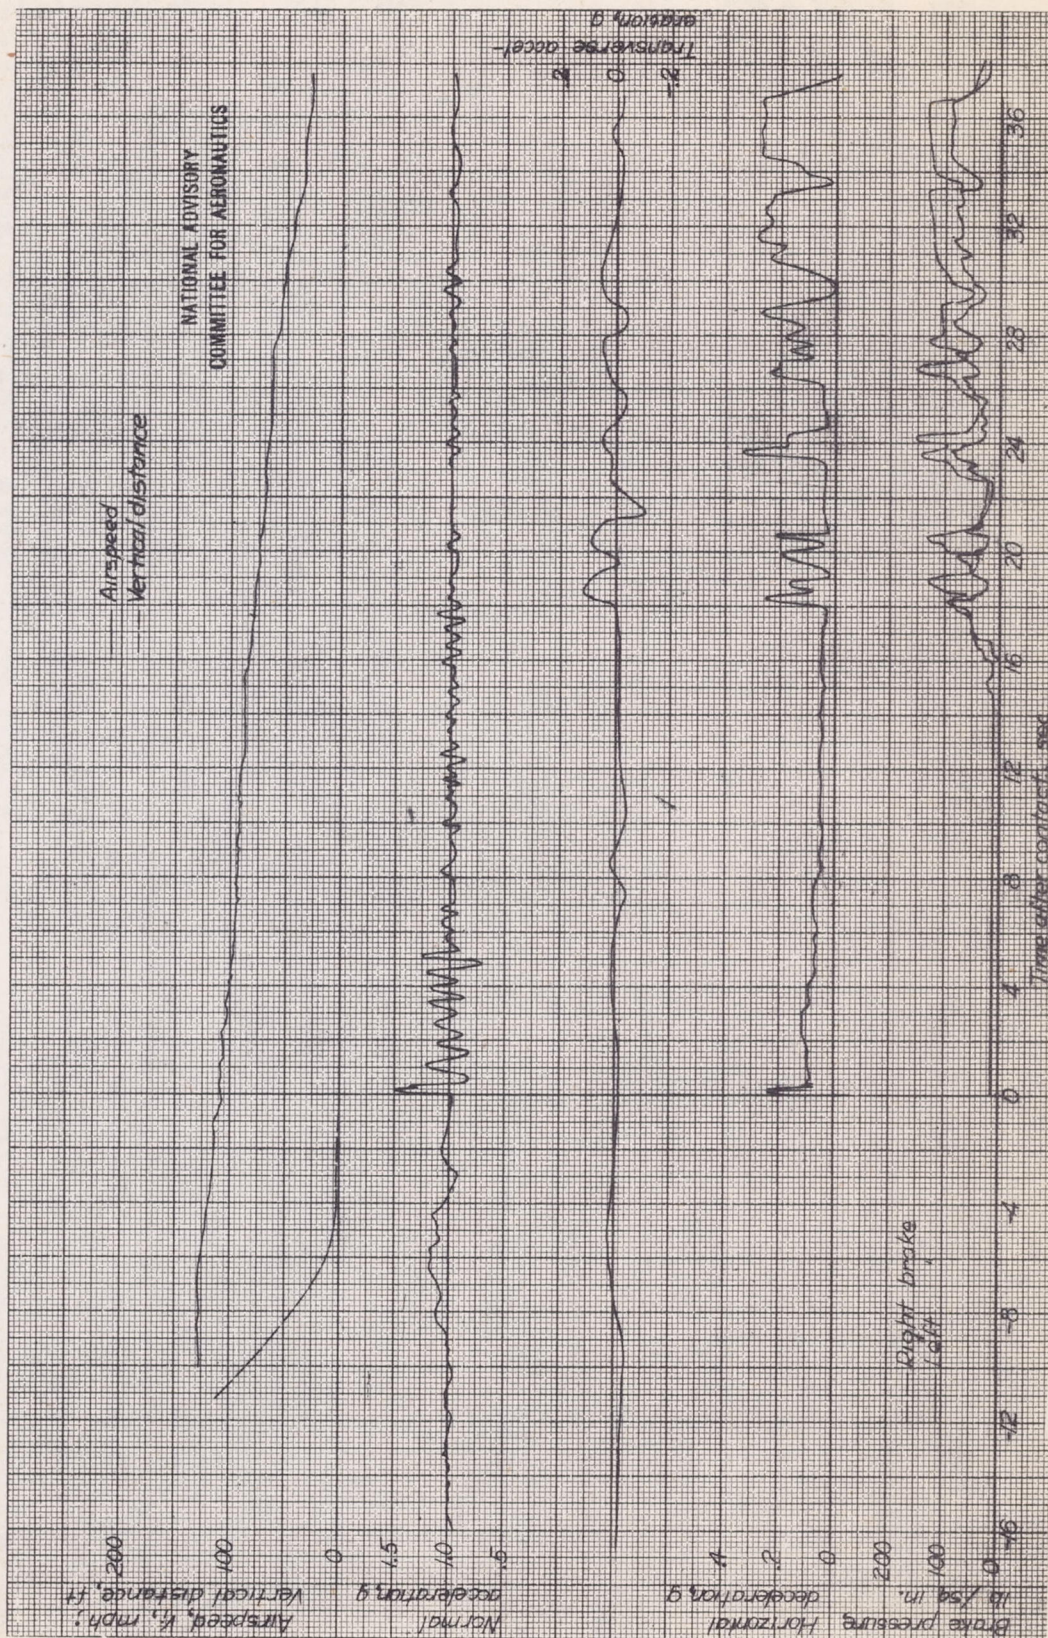 NATIONAL ADVISORY
COMMITTEE FOR AERONAUTICS
Airspeed
Vertical distance
Airspeed, Vi, mph;
Vertical distance, ft
200
100
0
Normal
acceleration, g
1.5
1.0
.5
Transverse accel-
eration, g
.2
0
-.2
Horizontal
deceleration, g
.4
.2
0
Brake pressure,
lb/sq in.
200
100
0
Right brake
Left
-16
-12
-8
-4
0
4
8
12
16
20
24
28
32
36
Time after contact, sec